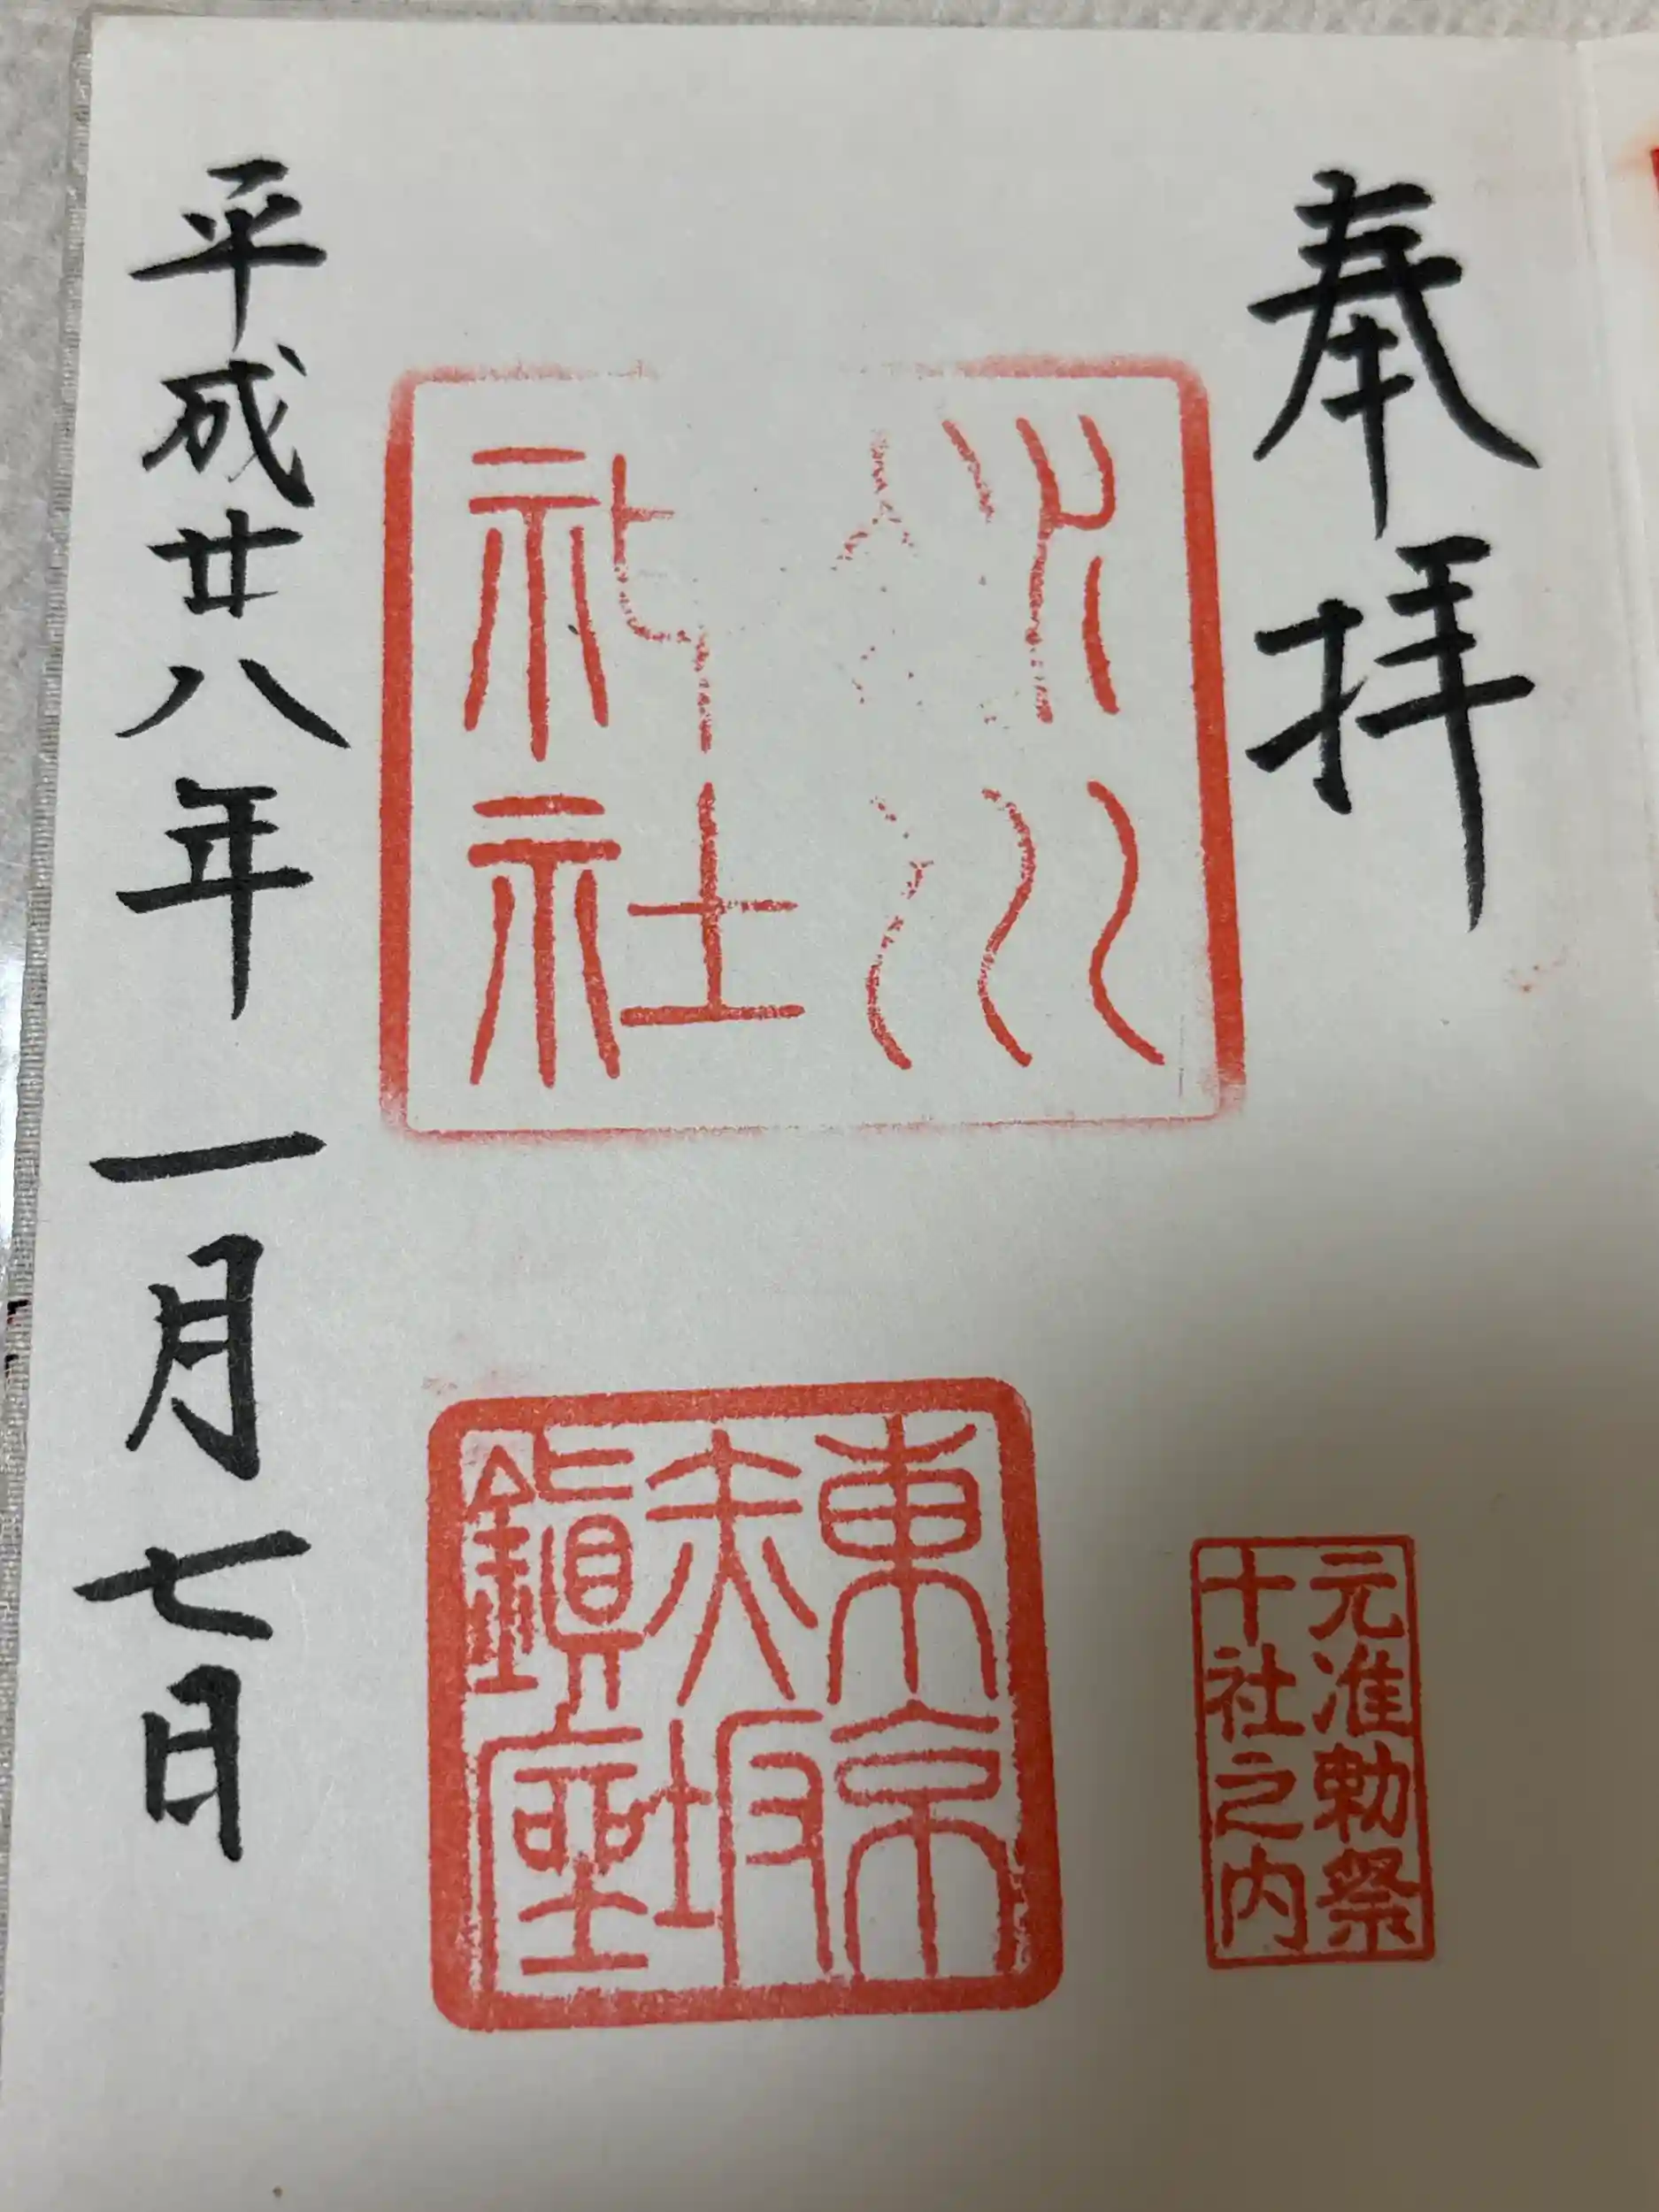 奉拝
元准勅祭
十社之内
氷川
神社
東京
赤坂
鎮座
平成廿八年一月七日